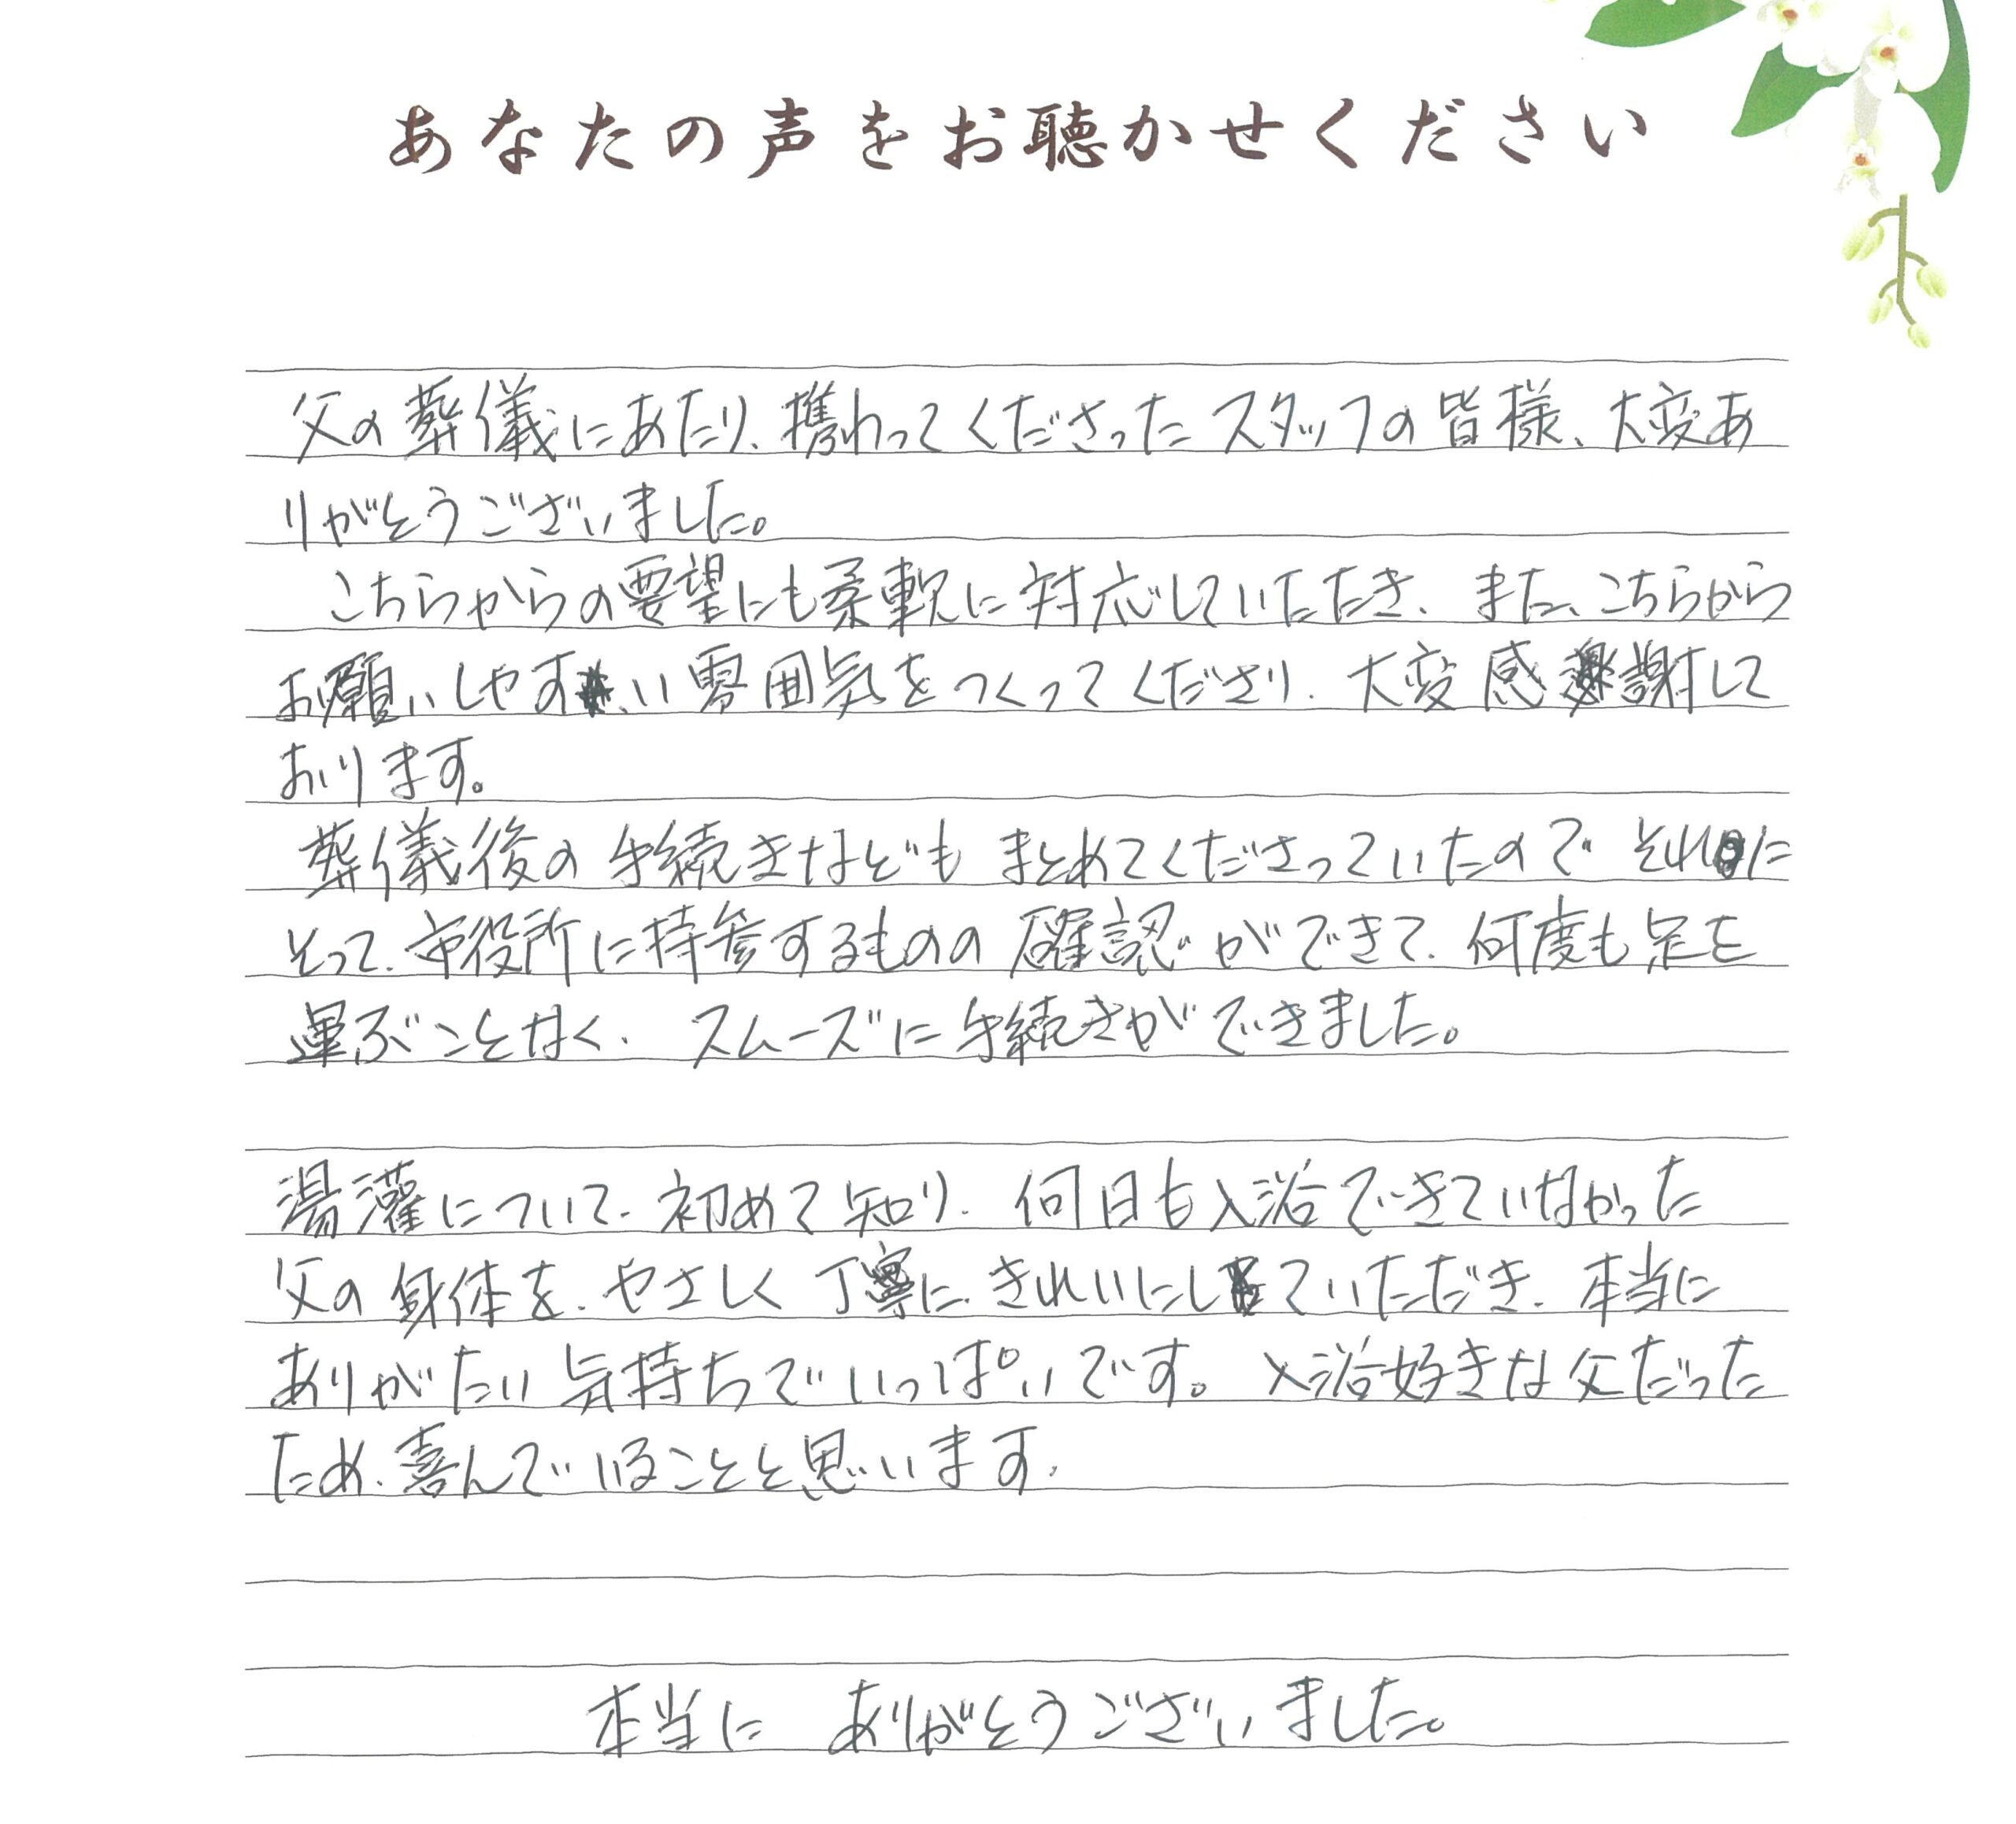 あなたの声をお聴かせください
父の葬儀にあたり、携わってくださったスタッフの皆様、大変あ
りがとうございました。
こちらからの要望にも柔軟に対応していただき、また、こちらから
お願いしやすい雰囲気をつくってくださり、大変感謝して
おります。
葬儀後の手続きなどもまとめてくださっていたので それに
そって、市役所に持参するものの確認ができて、何度も足を
運ぶことなく、スムーズに手続きができました。
湯灌について、初めて知り、何日も入浴できていなかった
父の身体を、やさしく丁寧に、きれいにしていただき、本当に
ありがたい気持ちでいっぱいです。入浴好きな父だった
ため、喜んでいることと思います。
本当に ありがとうございました。